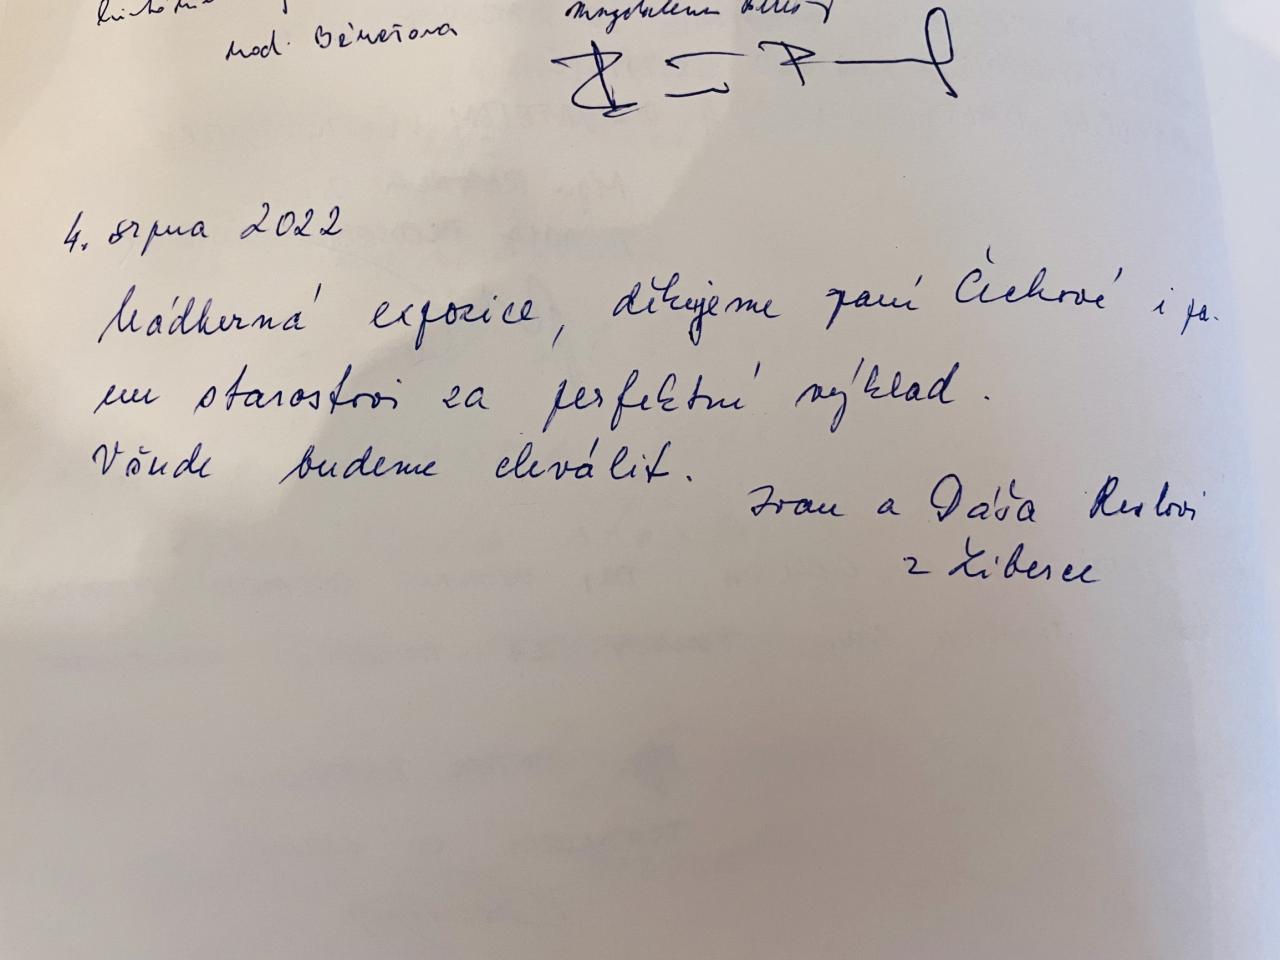 4. srpna 2022
Nádherná expozice, děkujeme paní Čechové i pa-
nu starostovi za perfektní výklad.
Všude budeme chválit.
Ivan a Dáša
z Liberce